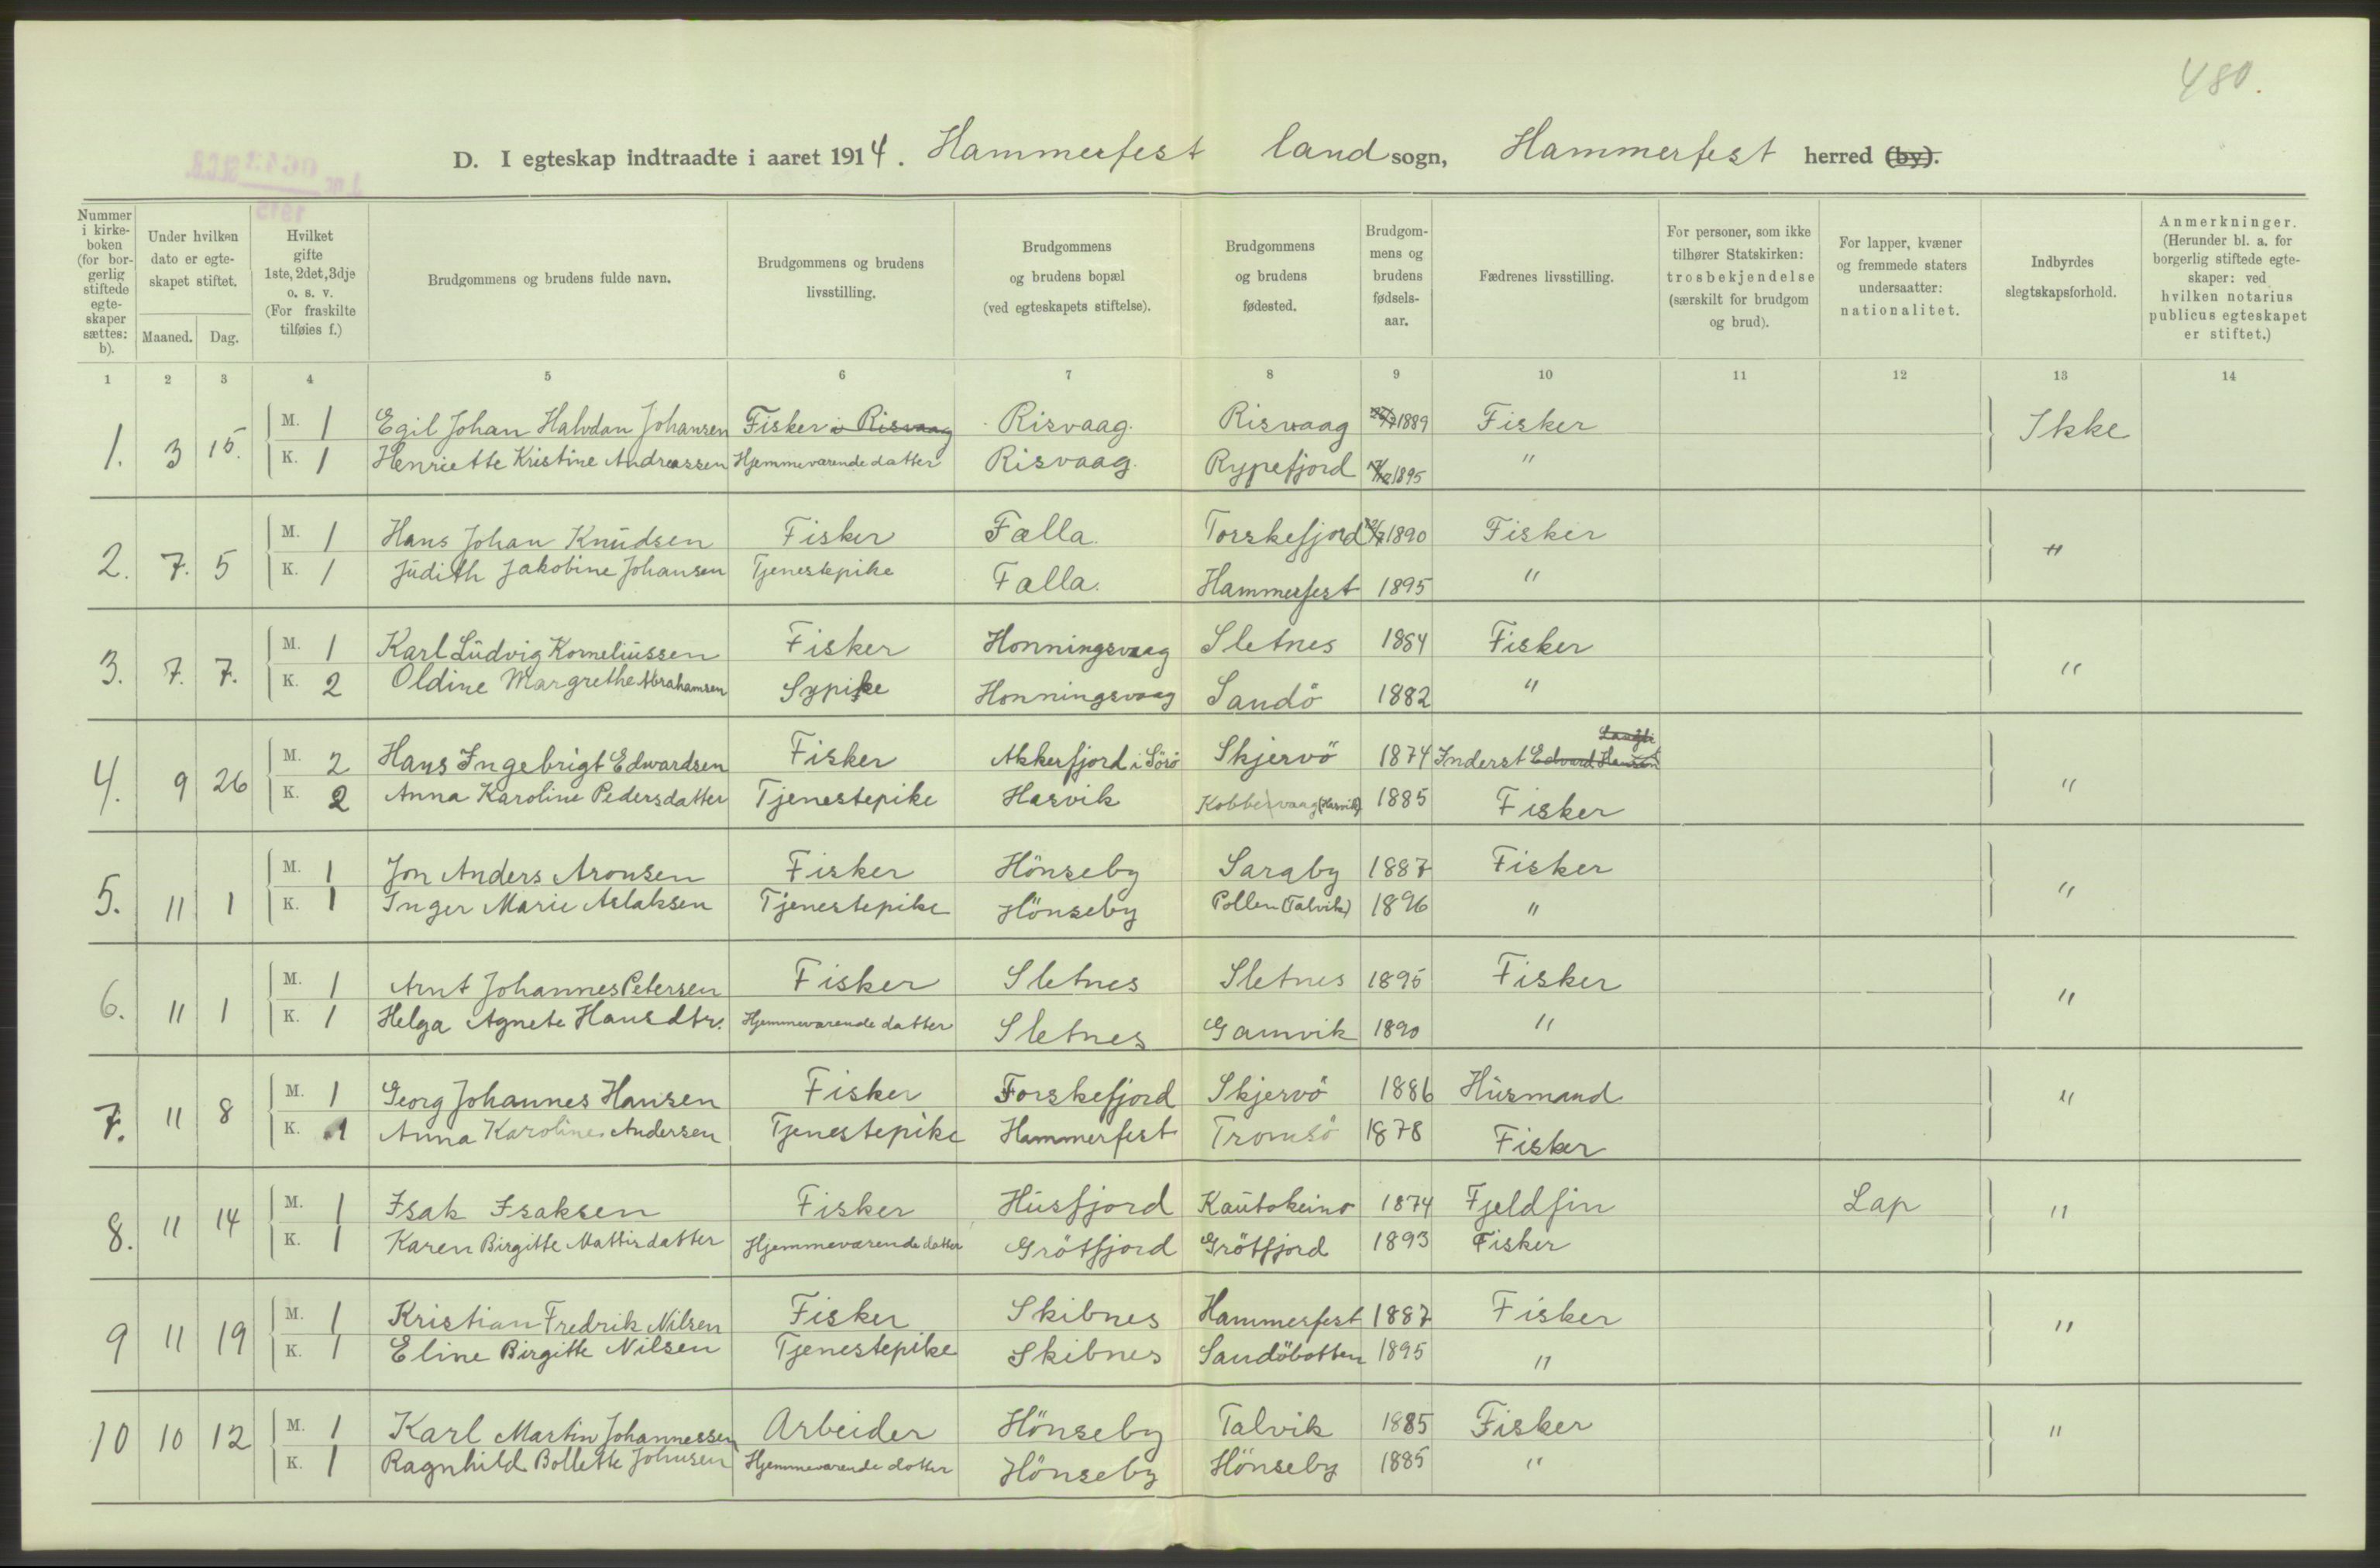 480.
D. I egteskap indtraadte i aaret 1914. Hammerfest land sogn, Hammerfest herred (by).
Nummer i kirkeboken (for borgerlig stiftede egteskaper sættes: b).
Under hvilken dato er egteskapet stiftet.
Maaned. Dag.
Hvilket gifte 1ste, 2det, 3dje o. s. v. (For fraskilte tilføies f.)
Brudgommens og brudens fulde navn.
Brudgommens og brudens livsstilling.
Brudgommens og brudens bopæl (ved egteskapets stiftelse).
Brudgommens og brudens fødested.
Brudgommens og brudens fødselsaar.
Fædrenes livsstilling.
For personer, som ikke tilhører Statskirken: trosbekjendelse (særskilt for brudgom og brud).
For lapper, kvæner og fremmede staters undersaatter: nationalitet.
Indbyrdes slegtskapsforhold.
Anmerkninger. (Herunder bl. a. for borgerlig stiftede egteskaper: ved hvilken notarius publicus egteskapet er stiftet.)
1 2 3 4 5 6 7 8 9 10 11 12 13 14
1. 3 15. M. 1 Egil Johan Halvdan Johansen Fisker i Risvaag Risvaag. Risvaag 1889 Fisker Ikke
K. 1 Henriette Kristine Andreassen Hjemmeværende datter Risvaag. Rypefjord 1895 "
2. 7. 5 M. 1 Hans Johan Knudsen Fisker Falla. Torskefjord 1890 Fisker "
K. 1 Judith Jakobine Johansen Tjenestepike Falla. Hammerfest 1895 "
3. 7. 7. M. 1 Karl Ludvig Korneliussen Fisker Honningsvaag Sletnes 1884 Fisker "
K. 2 Oldine Margrethe Abrahamsen Sypike Honningsvaag Sandö 1882 "
4. 9 26 M. 2 Hans Ingebrigt Edwardsen Fisker Akkerfjord i Sörö Skjervö 1874 Inderst Edvard Hansen "
K. 2 Anna Karoline Pedersdatter Tjenestepike Hasvik Kobbervaag (Hasvik) 1885 Fisker
5. 11 1 M. 1 Jon Anders Aronsen Fisker Hönseby Saraby 1887 Fisker "
K. 1 Inger Marie Aslaksen Tjenestepike Hönseby Pollen (Talvik) 1896 "
6. 11 1 M. 1 Arnt Johannes Petersen Fisker Sletnes Sletnes 1895 Fisker "
K. 1 Helga Agnete Hansdtr. Hjemmeværende datter Sletnes Gamvik 1890 "
7. 11 8 M. 1 Georg Johannes Hansen Fisker Forskefjord Skjervö 1886 Husmand "
K. 1 Anna Karoline Andersen Tjenestepike Hammerfest Tromsö 1878 Fisker
8. 11 14 M. 1 Isak Isaksen Fisker Husfjord Kautokeino 1874 Fjeldfin Lap "
K. 1 Karen Birgitte Mattisdatter Hjemmeværende datter Grötfjord Grötfjord 1893 Fisker
9 11 19 M. 1 Kristian Fredrik Nilsen Fisker Skibnes Hammerfest 1887 Fisker "
K. 1 Eline Birgitte Nilsen Tjenestepike Skibnes Sandöbotten 1895 "
10 10 12 M. 1 Karl Martin Johannessen Arbeider Hönseby Talvik 1885 Fisker "
K. 1 Ragnhild Bollette Johnsen Hjemmeværende datter Hönseby Hönseby 1885 "